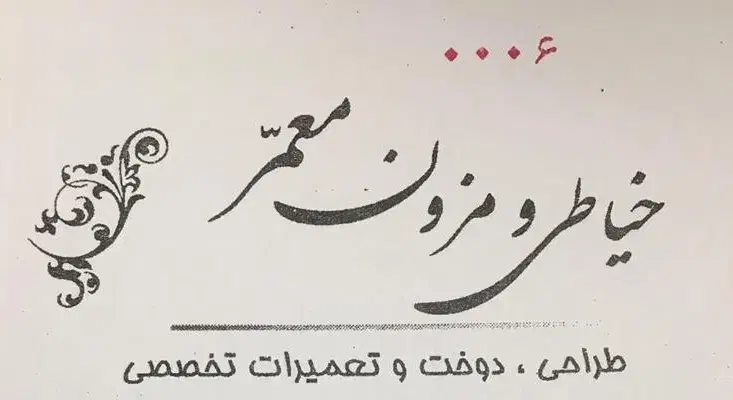 ۰۰۰۶
خیاطی و مزون معمّر
طراحی ، دوخت و تعمیرات تخصصی